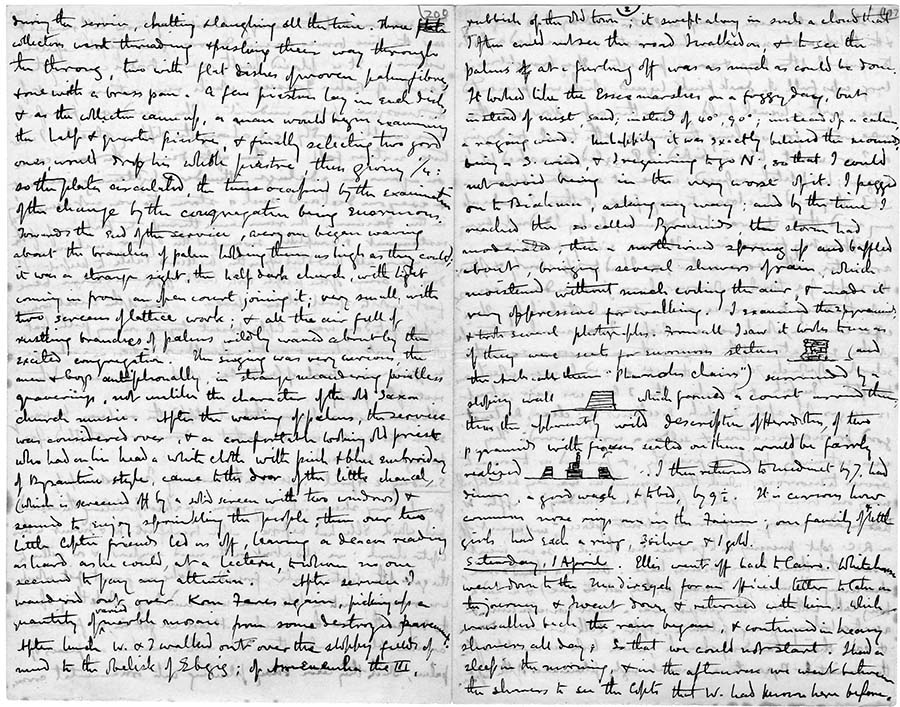 200
during the service, chatting & laughing all the time. Three
collectors went threading & pushing their way through
the throng, two with flat dishes of woven palm fibre,
& one with a brass pan. A few piastres lay in each dish,
& as the collector came up, a man would begin examining
the half & quarter piastres, & finally selecting two good
ones would drop his whole piastre, thus giving
so the plates circulated, the time occupied by the examination
of the change by the congregation being enormous.
Towards the end of the service, everyone began waving
about the branches of palm holding them as high as they could;
it was a strange sight, the half dark church, with light
coming in from an open court joining it, very small, with
two screens of lattice work; & all the air full of
rustling branches of palms wildly waved about by the
excited congregation. The singing was very curious, the
men & boys antiphonally, in strange meandering pointless
quaverings, not unlike the character of the old Saxon
church music. After the waving of palms, the service
was considered over, & a comfortable looking old priest
who had on his head a white cloth with pink & blue embroidery
of Byzantine style, came to the door of the little chancel,
(which is screened off by a solid screen with two windows) &
seemed to enjoy sprinkling the people; then our two
little Coptic friends led us off, leaving a deacon reading
as hard as he could, at a lectern, to whom no one
seemed to pay any attention. After service I
wandered out over Kom Fares again, picking up a
quantity of varied marble mosaic from some destroyed pavement.
After lunch W. & I walked out over the sloppy fields of
mud to the obelisk of Ebgig; of Amenemha the III.
2
rubbish of the old town; it swept along in such a cloud that
I often could not see the road I walked on, & to see the
palms at a furlong off was as much as could be done.
It looked like the Essex marshes on a foggy day, but
instead of mist sand; instead of 40°, 90°; instead of a calm,
a raging wind. Unhappily it was exactly behind the
being a S. wind & I requiring to go N. so that I could
not avoid being in the very worst of it. I pegged
on to Biahmu, asking my way; and by the time I
reached the so called Pyramids, the storm had
moderated; then a north wind sprang up and baffled
about, bringing several showers of rain, which
moistened without much cooling the air, & made it
very oppressive for walking. I examined the 2 pyramids
& took several photographs. From all I saw it looks to me as
if they were seats for enormous statues (and
the Arabs call them "Pharaohs chairs") surrounded by a
sloping wall which formed a court around them,
thus the apparently wild description of Herodotus, of two
pyramids with figures seated on them would be fairly
realized. I then returned to Medinet by 7, had
dinner, a good wash, & to bed, by 9½. It is curious how
common nose rings are in the Fayum; one family of little
girls had each a ring, 3 silver & 1 gold.
Saturday, 1 April. Ellis went off back to Cairo.
went down to the Mudiriyeh for an official letter to take on
the journey & I went down & returned with him. While
we walked back the rain began, & continued in heavy
showers all day; so that we could not start. I had a
sleep in the morning, & in the afternoon we went between
the showers to see the Copts that W. had known here before.